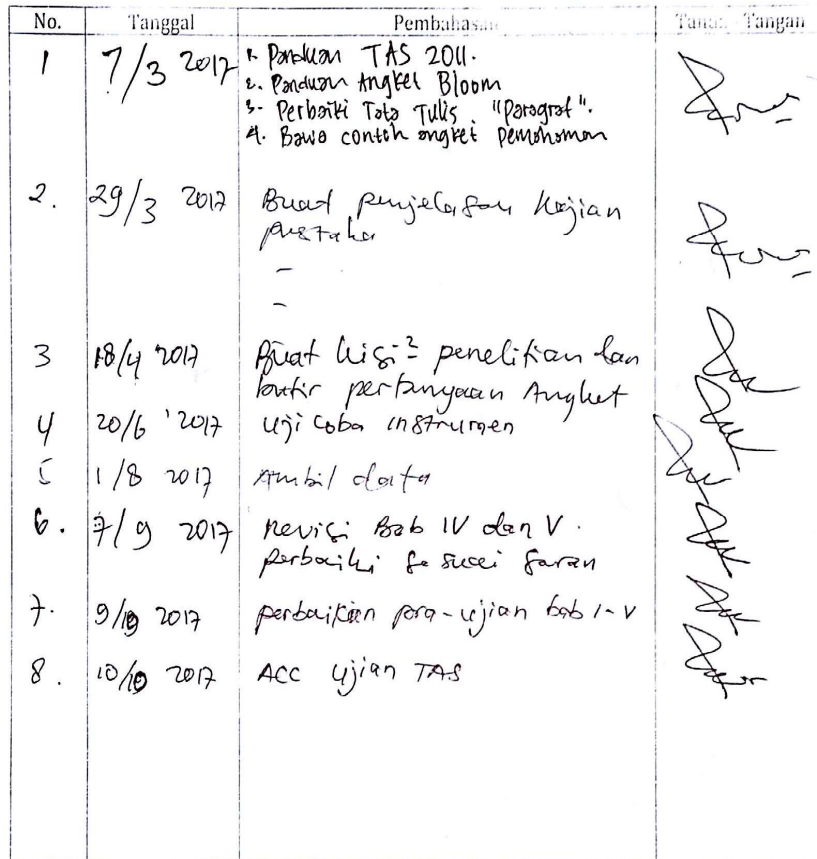 No. Tanggal Pembahasan Tanda Tangan
1 7/3 2017 1. Panduan TAS 2011.
2. Panduan Angket Bloom
3. Perbaiki Tata Tulis. "Paragraf".
4. Bawa contoh angket pemahaman
2. 29/3 2017 Buat penjelasan kajian
pustaka
-
-
3 18/4 2017 Buat kisi² penelitian dan
butir pertanyaan Angket
4 20/6 '2017 Uji coba instrumen
5 1/8 2017 Ambil data
6. 7/9 2017 Revisi Bab IV dan V.
perbaiki sesuai saran
7. 9/10 2017 perbaikan pra-ujian bab I-V
8. 10/10 2017 ACC Ujian TAS